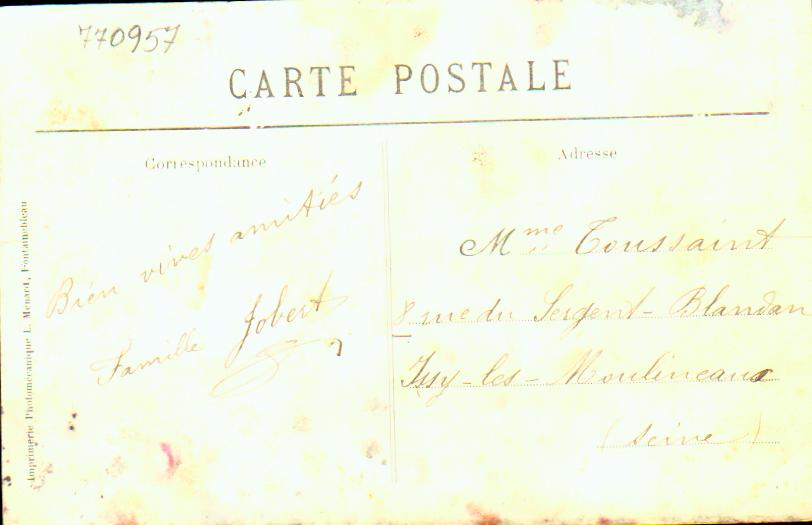 770957
CARTE POSTALE
Correspondance
Adresse
Bien vives amitiés
Famille Jobert
Mme Toussaint
8 rue du Sergent-Blandan
Issy-les-Moulineaux
(Seine)
Imprimerie Photomecanique L. Menard, Fontainebleau